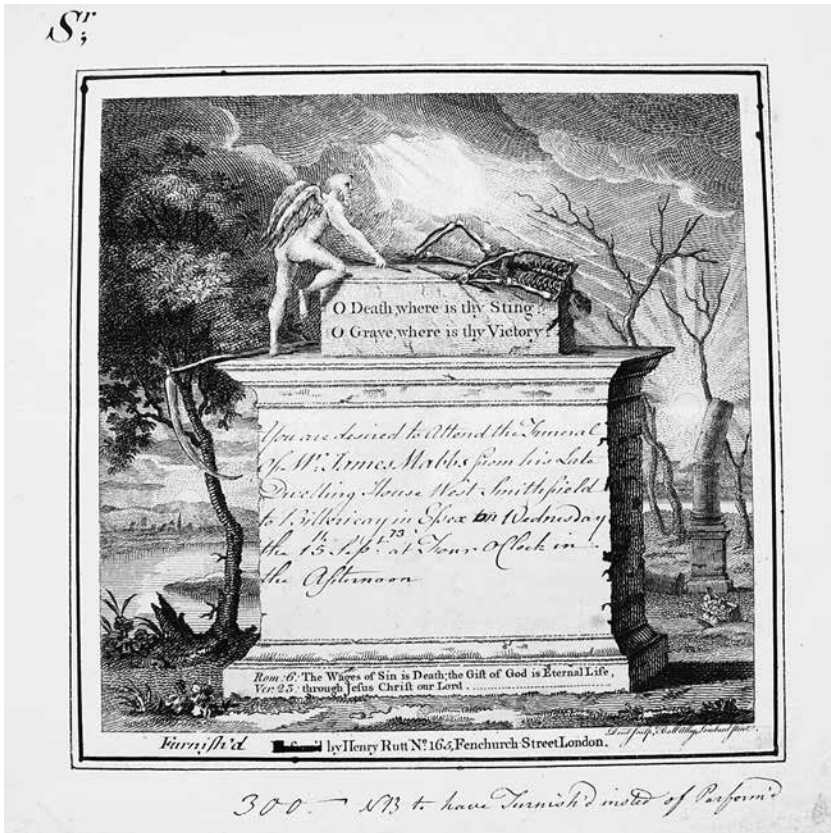 Sr;
O Death, where is thy Sting?
O Grave, where is thy Victory?
You are desired to Attend the Funeral
Of Mr. James Mabbs from his Late
Dwelling House West Smithfield
to Billericay in Essex on Wednesday
the 15th Sepr. 73 at Four OClock in
the Afternoon
Rom: 6: The Wages of Sin is Death; the Gift of God is Eternal Life,
Ver: 23: through Jesus Christ our Lord
Furnish'd by Henry Rutt No. 165, Fenchurch Street London.
300. — NB to have Furnish'd insted of Perform'd